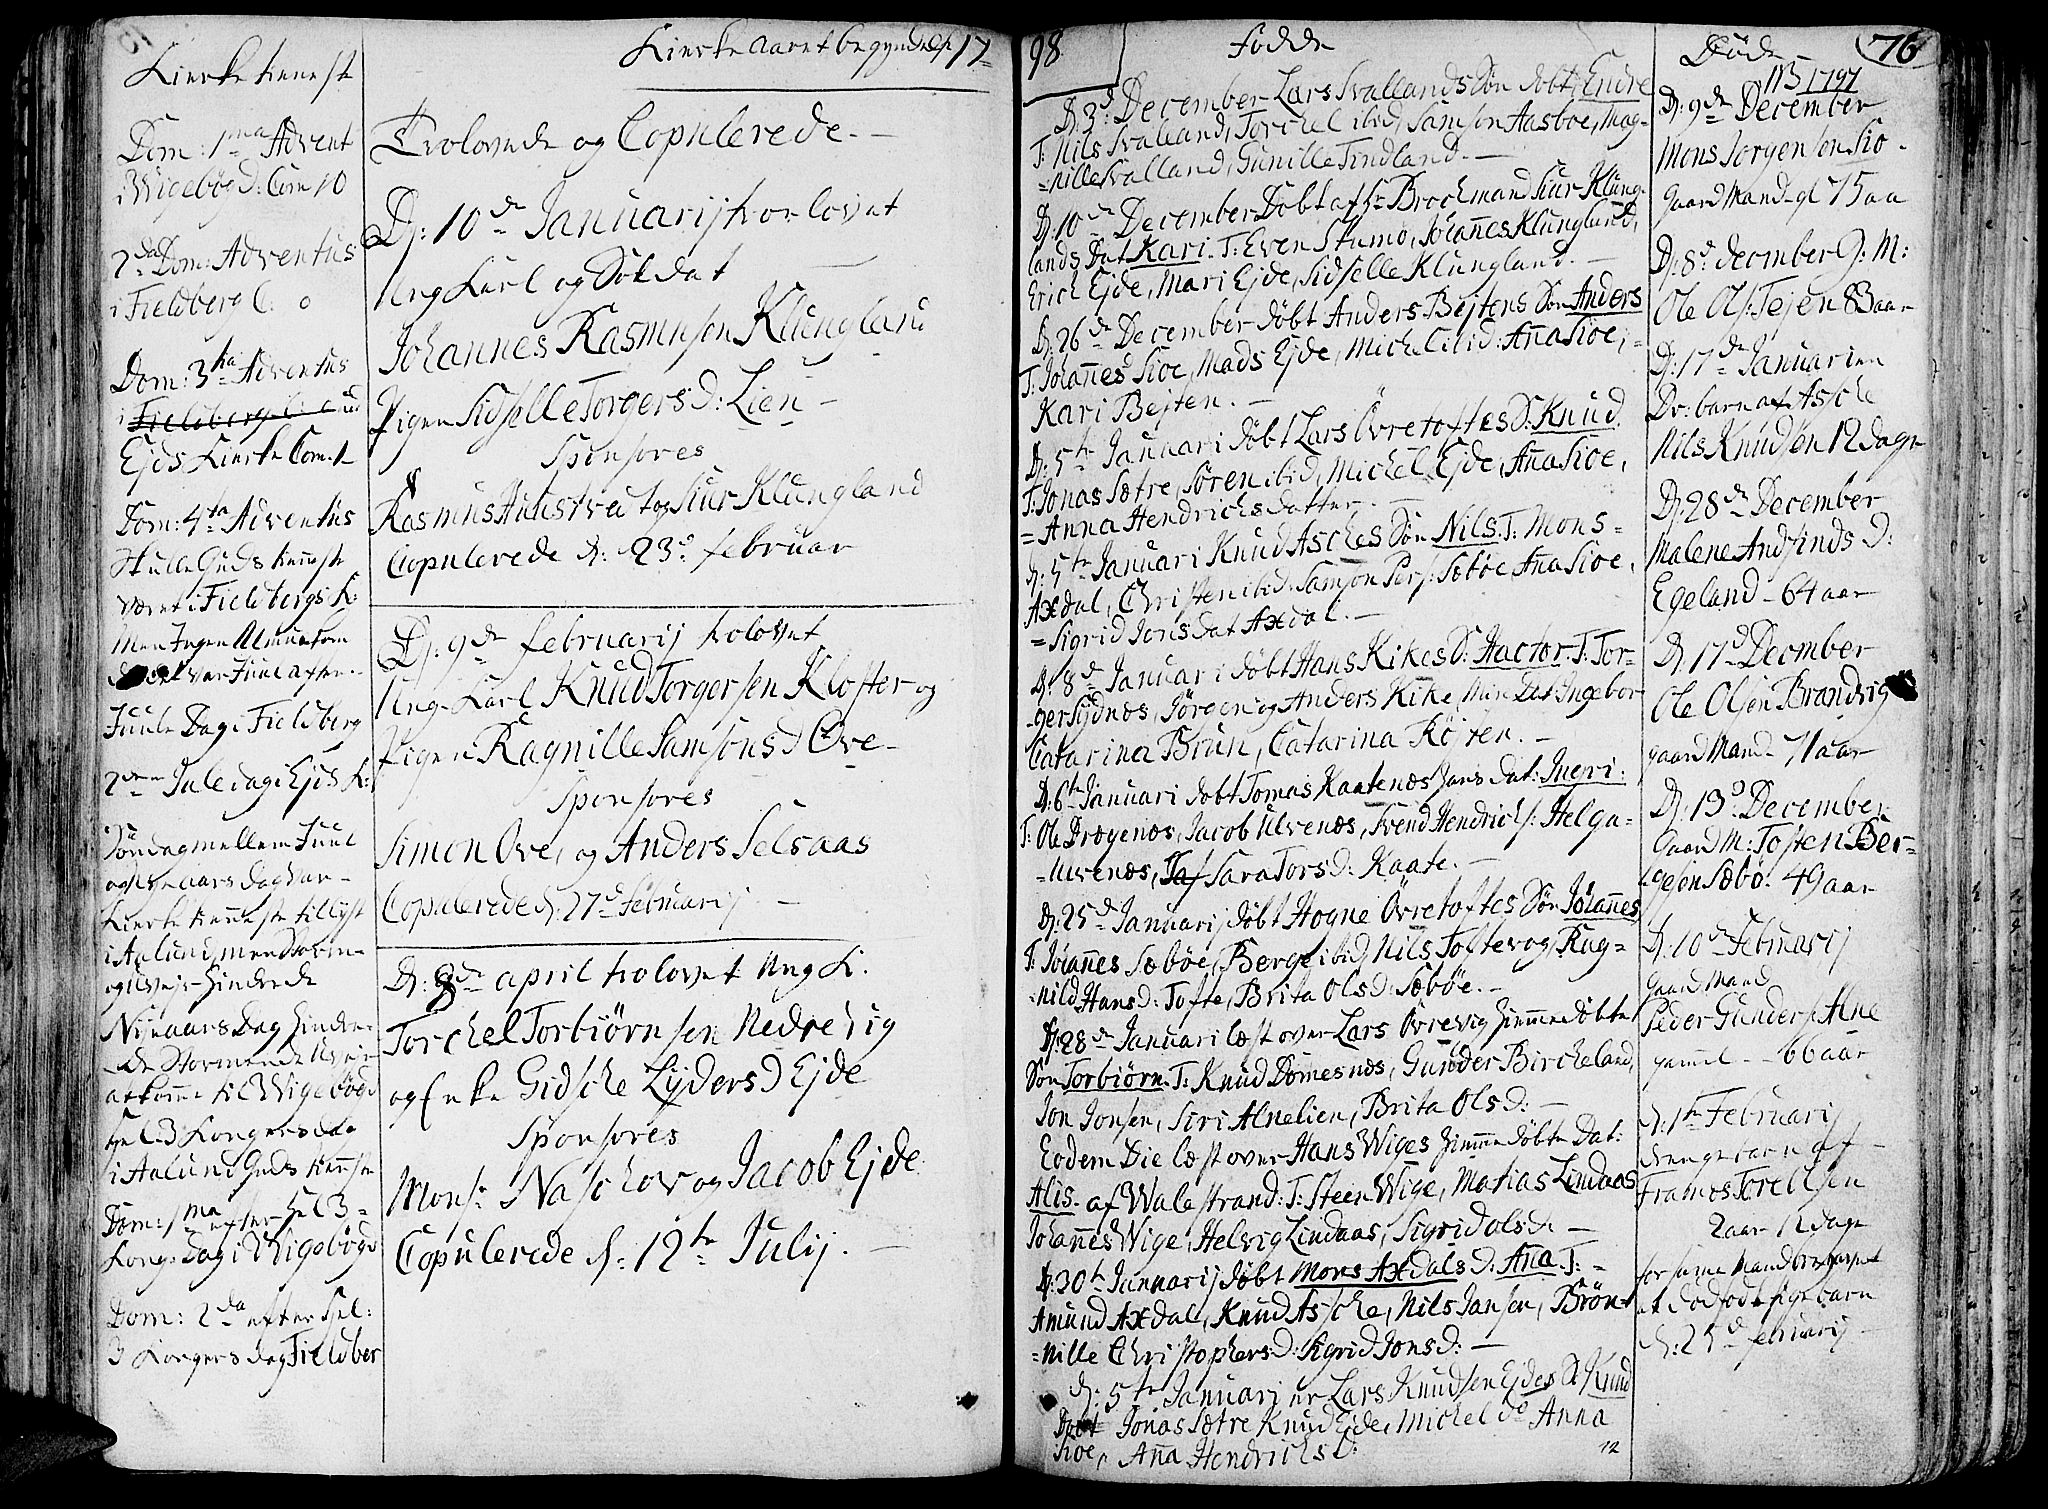 Kirke tieneste
Dom: 1ma Advent
i Wigebøgd: Com 10
2da Dom: Adventus
i Fieldberg C: 0
Dom: 3tia Adventus
i Fieldbergs
Ejds Kirke Com: 1
Dom: 4ta Adventus
skulle Guds tieneste
været i Fieldbergs K:
men Ingen Almue kom
det var Juul aften
Juule Dag i Fieldberg
2den Jule dag i Ejds K:
Søndag mellem Juul
og Nye aars dag var
Kirke tieneste tillyst
i Aalund men storm
og uvejr hindrede
Nyeaars Dag hindre
de Stormende Uvejr
at komme til Wigebøgd
hel: 3 Kongers dag
i Aalund Guds tieneste
Dom: 1ma efter hel 3
Kong: dag i Wigebøgd
Dom: 2da efter hel:
3 Kongers dag Fieldber
Kirke aaret begyndes 17
Trolovede og Copulerede.
D: 10de Januarij trolovet
Ung Karl og Søkdat
Johannes Rasmusen Klungland
Pigen Sidselle Torgersd: Lien
Sponsores
Rasmus Huustvet og Siur Klungland
Copulerede d: 23de februar
D: 9de februarij trolovet
Ung Karl Knud Torgersen Kloster og
Pigen Ragnille Samsonsd Ove
Sponsores
Simon Ove, og Anders Selsaas
Copulerede d: 27de Februarij
D: 8de april trolovet Ung K:
Torchel Torbiørnsen Nedrevig
og Enke Gidsche Lydersd Ejde
Sponsores
Mons: Naschov og Jacob Ejde
Copulerede d: 12te Julij.
98
Fødde
D: 3de December Lars Svallands Søn døbt Endre
T: Nils Svalland, Torchel ibid, Samson Aasboe, Mag-
nille Svalland, Gunille Tindland.
D: 10de December Døbt af Hr Brochmand Siur Klung
lands Dat Kari. T: Even Stumo, Johannes Klungland,
Erich Ejde, Mari Ejde, Sidselle Klungland.
D: 26de December døbt Anders Bejtens Søn Anders
T: Johannes Sioe, Mads Ejde, Michel ibid: Ana Sioe,
Kari Bejten.
D: 5te Januari døbt Lars Øvretoftes S: Knud
T: Jonas Sætre, Søren ibid, Michel Ejde, Ana Sioe,
Anna Hendrichsdatter.
D: 5te Januari Knud Asches Søn Nils. T: Mons
Axdal, Christen ibid: Samson Pers: Sæbøe Ana Sioe,
Sigrid Jonsdat Axdal.
D: 8de Januari døbt Hans Kikes S: Hactor. T: Tor-
ger Sydnæs, Jørgen og Anders Kike, Min Dat Ingebor
Catarina Brun, Catarina Røren.
D: 6te Januari døbt Tomas Kaatenæs Barn Dat: Ingri:
T: Ole Drægenæs, Jacob Ulvenæs, Svend Hendrichs: Helga
Ulvenæs, Sara Torsd: Kaate.
D: 25de Januarij døbt Hogne Øvretoftes Søn Johannes
T: Johannes Sæbøe, Berge ibid, Nils Tofte og Rag-
nild Hansd: Tofte, Brita Olsd: Sæbøe.
D: 28de Januari læst over Lars Øvrevig hiemmedøbte
Søn Torbiørn. T: Knud Dømesnæs, Gunder Bircheland,
Jon Jonsen, Siri Alnelien, Brita Olsd:
Eodem Die læst over Hans Wiges hiemmedøbte Dat:
Alis. af Walestrand: T: Steen Wige, Matias Lindaas
Johannes Wige, Helvig Lindaas, Sigrid Olsd:
D: 30te Januarij døbt Mons Axdals D: Ana. T:
Amund Axdal, Knud Asche, Nils Jansen, Brøn-
nille Christophersd: Sigrid Jonsd:
d: 5te Januari er Lars Knudsen Ejdes S: Knud
Døbt Jonas Sætre Knud Ejde, Michel do Anna
Sioe, Ana Hendrichsd:
12
Døde
76
1797
D: 9de December
Mons Jorgensen Sio
Gaardmand gl 75 aa
D: 8de December G: M:
Ole Ols: Tejen 83 aar
D: 17de Januari en
Dr: barn af Asche
Nils Knudsen 12 dage
D: 28de December
Malene Andfinds D:
Egeland 64 aar
D: 17de December
Ole Olsen Brandvig
gaardmand 71 aar
D: 13de December
Gaardm: Tosten Ber-
gesen Sæbø. 49 aar
D: 10de Februarij
Gaardmand
Peder Gunders: Alne
gammel 66 aar
d: 1te Februarij
Drengebarn af
Framos Torellsen
2 aar 12 dage
for samme mand begravet
et dødfødt pigebarn
d: 25de februarij